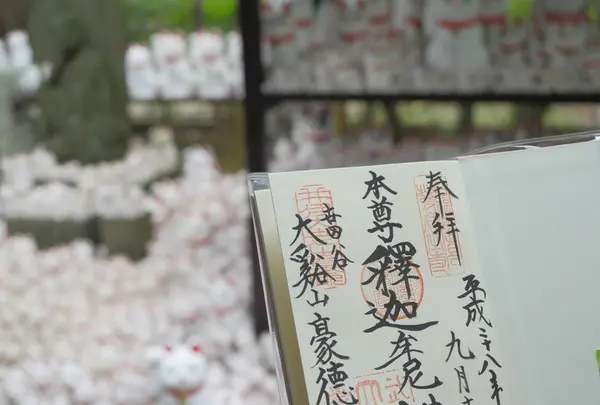 奉拝
平成二十八年
九月
本尊
釋迦牟尼
世田谷
大谿山豪徳